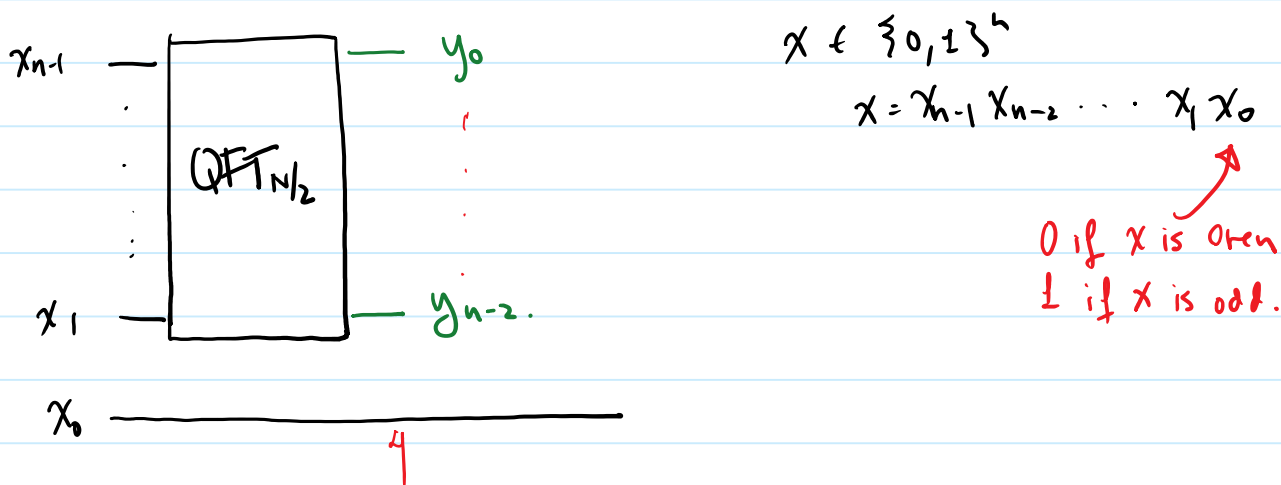 xₙ₋₁
QFT_N/2
y₀
x₁
yₙ₋₂.
x₀
x ∈ {0,1}ⁿ
x = xₙ₋₁ xₙ₋₂ ... x₁ x₀
0 if x is even
1 if x is odd.